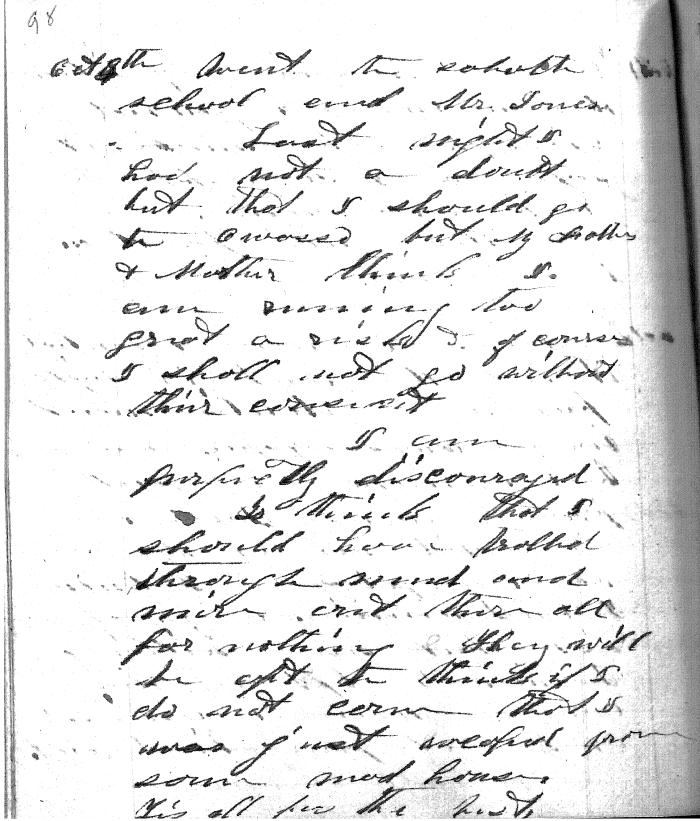 98
Oct 8th Went to sabbath
school and Mr. Jones
Last night I
had not a doubt
but that I should go
to Owosso but My Father
& Mother think I
am running too
great a risk & of course
I shall not go without
their consent
I am
perfectly discouraged
To think that I
should have trotted
through mud and
mire and then all
for nothing They will
be apt to think if I
do not come that I
was just escaped from
some mad house.
Tis all for the best